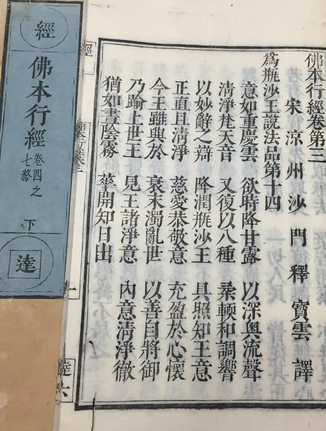 佛本行經卷第三
宋涼州沙門釋寶雲譯
為瓶沙王說法品第十四
意如重慶雲 欲時降甘露 以深奧流聲
清淨梵天音 又復以八種 柔輭和調響
以妙辭之辯 降潤瓶沙王 具照知王意
正直且清淨 慈愛恭敬意 充盈於心懷
今王雖與於 衰末濁亂世 以善自將御
乃踰上世王 見王諸淨意 內意清淨徹
猶如晝陰霧 華開知日出
經
達六
經
佛本行經
卷四之
七終
下
達